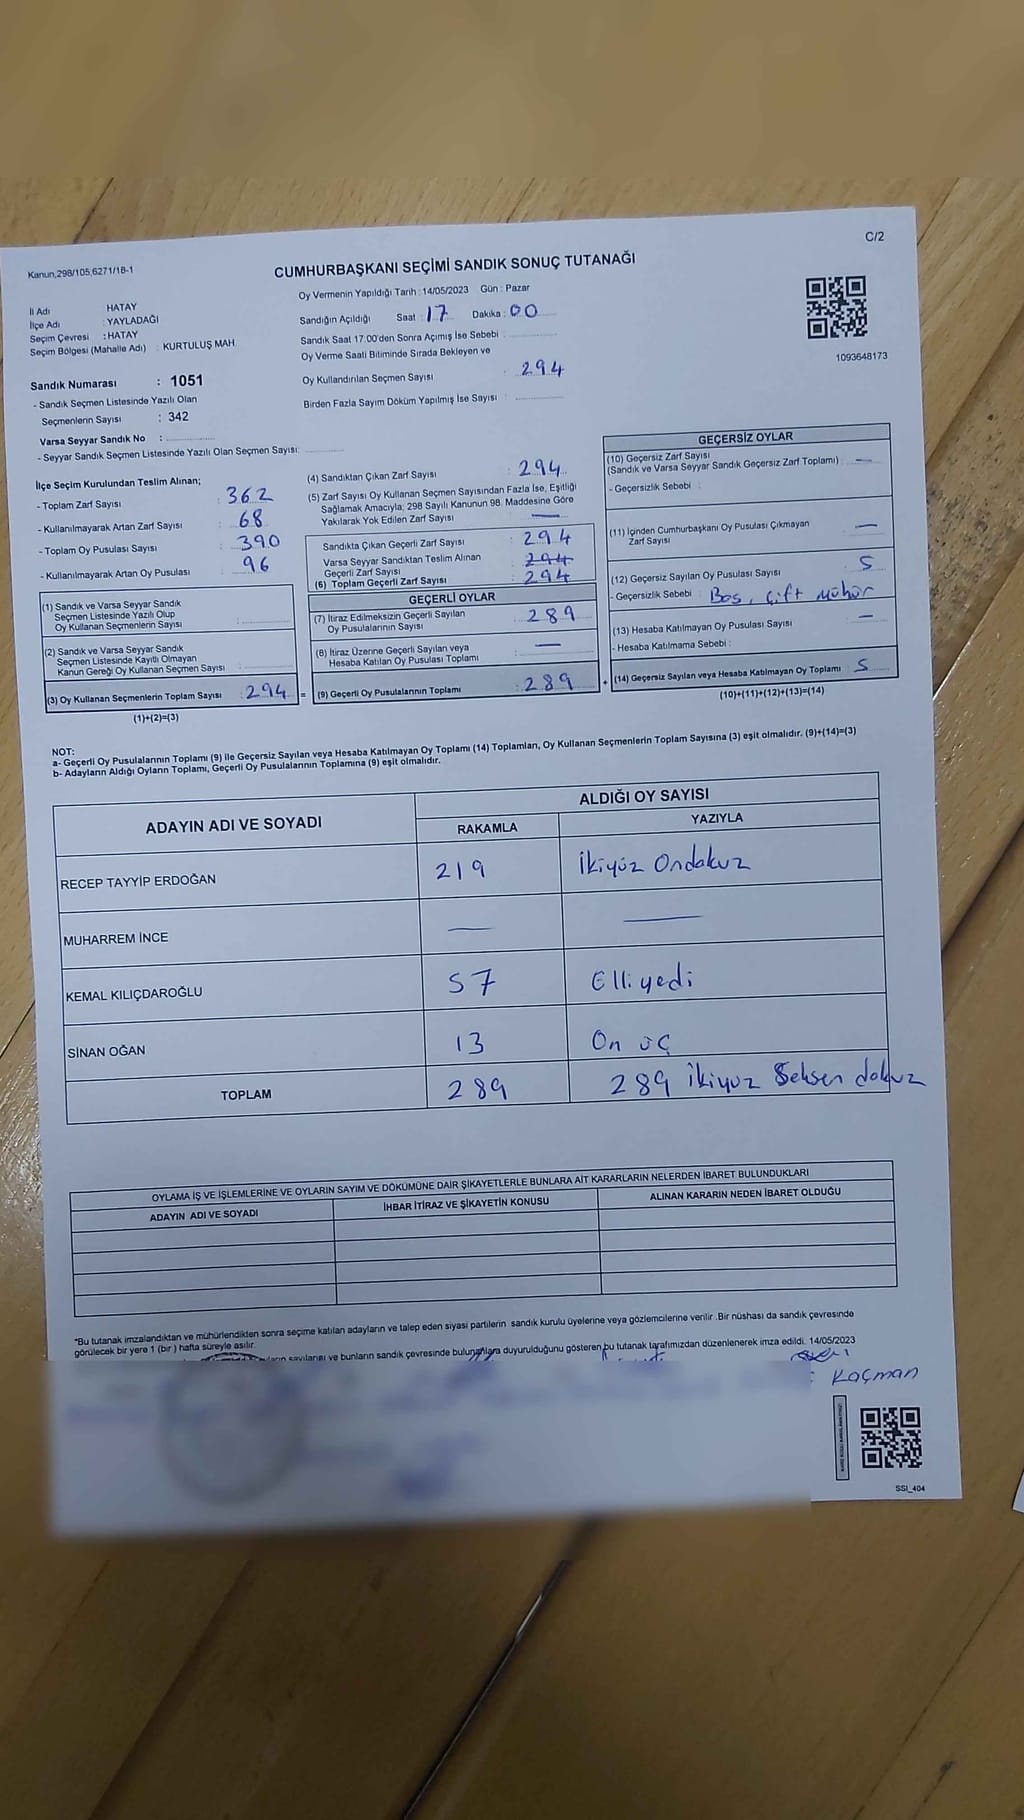 C/2
Kanun,298/105,6271/18-1
CUMHURBAŞKANI SEÇİMİ SANDIK SONUÇ TUTANAĞI
İl Adı HATAY
İlçe Adı : YAYLADAĞI
Seçim Çevresi : HATAY
Seçim Bölgesi (Mahalle Adı) : KURTULUŞ MAH.
Oy Vermenin Yapıldığı Tarih : 14/05/2023 Gün : Pazar
Sandığın Açıldığı Saat : 17 Dakika : 00
Sandık Saat 17:00'den Sonra Açımış İse Sebebi :
Oy Verme Saati Bitiminde Sırada Bekleyen ve
Oy Kullandırılan Seçmen Sayısı : 294
Birden Fazla Sayım Döküm Yapılmış İse Sayısı :
1093648173
Sandık Numarası : 1051
- Sandık Seçmen Listesinde Yazılı Olan
Seçmenlerin Sayısı : 342
Varsa Seyyar Sandık No :
- Seyyar Sandık Seçmen Listesinde Yazılı Olan Seçmen Sayısı:
İlçe Seçim Kurulundan Teslim Alınan;
- Toplam Zarf Sayısı : 362
- Kullanılmayarak Artan Zarf Sayısı : 68
- Toplam Oy Pusulası Sayısı : 390
- Kullanılmayarak Artan Oy Pusulası : 96
(1) Sandık ve Varsa Seyyar Sandık
Seçmen Listesinde Yazılı Olup
Oy Kullanan Seçmenlerin Sayısı :
(2) Sandık ve Varsa Seyyar Sandık
Seçmen Listesinde Kayıtlı Olmayan
Kanun Gereği Oy Kullanan Seçmen Sayısı :
(3) Oy Kullanan Seçmenlerin Toplam Sayısı : 294 =
(1)+(2)=(3)
(4) Sandıktan Çıkan Zarf Sayısı : 294
(5) Zarf Sayısı Oy Kullanan Seçmen Sayısından Fazla İse, Eşitliği
Sağlamak Amacıyla; 298 Sayılı Kanunun 98. Maddesine Göre
Yakılarak Yok Edilen Zarf Sayısı : —
Sandıkta Çıkan Geçerli Zarf Sayısı : 294
Varsa Seyyar Sandıktan Teslim Alınan
Geçerli Zarf Sayısı : 294
(6) Toplam Geçerli Zarf Sayısı : 294
GEÇERLİ OYLAR
(7) İtiraz Edilmeksizin Geçerli Sayılan
Oy Pusulalarının Sayısı : 289
(8) İtiraz Üzerine Geçerli Sayılan veya
Hesaba Katılan Oy Pusulası Toplamı : —
(9) Geçerli Oy Pusulalarının Toplamı : 289 +
GEÇERSİZ OYLAR
(10) Geçersiz Zarf Sayısı
(Sandık ve Varsa Seyyar Sandık Geçersiz Zarf Toplamı) : —
- Geçersizlik Sebebi :
(11) İçinden Cumhurbaşkanı Oy Pusulası Çıkmayan
Zarf Sayısı : —
(12) Geçersiz Sayılan Oy Pusulası Sayısı : 5
- Geçersizlik Sebebi : Boş, Çift mühür
(13) Hesaba Katılmayan Oy Pusulası Sayısı : —
- Hesaba Katılmama Sebebi :
(14) Geçersiz Sayılan veya Hesaba Katılmayan Oy Toplamı : 5
(10)+(11)+(12)+(13)=(14)
NOT:
a- Geçerli Oy Pusulalarının Toplamı (9) ile Geçersiz Sayılan veya Hesaba Katılmayan Oy Toplamı (14) Toplamları, Oy Kullanan Seçmenlerin Toplam Sayısına (3) eşit olmalıdır. (9)+(14)=(3)
b- Adayların Aldığı Oyların Toplamı, Geçerli Oy Pusulalarının Toplamına (9) eşit olmalıdır.
ADAYIN ADI VE SOYADI
ALDIĞI OY SAYISI
RAKAMLA YAZIYLA
RECEP TAYYİP ERDOĞAN 219 İkiyüz Ondokuz
MUHARREM İNCE — —
KEMAL KILIÇDAROĞLU 57 Elliyedi
SİNAN OĞAN 13 On üç
TOPLAM 289 289 İkiyüz Seksen dokuz
OYLAMA İŞ VE İŞLEMLERİNE VE OYLARIN SAYIM VE DÖKÜMÜNE DAİR ŞİKAYETLERLE BUNLARA AİT KARARLARIN NELERDEN İBARET BULUNDUKLARI
ADAYIN ADI VE SOYADI İHBAR İTİRAZ VE ŞİKAYETİN KONUSU ALINAN KARARIN NEDEN İBARET OLDUĞU
*Bu tutanak imzalandıktan ve mühürlendikten sonra seçime katılan adayların ve talep eden siyasi partilerin sandık kurulu üyelerine veya gözlemcilerine verilir .Bir nüshası da sandık çevresinde
görülecek bir yere 1 (bir ) hafta süreyle asılır.
ve bunların sandık çevresinde bulunanlara duyurulduğunu gösteren bu tutanak tarafımızdan düzenlenerek imza edildi. 14/05/2023
Kaçman
SSI_404